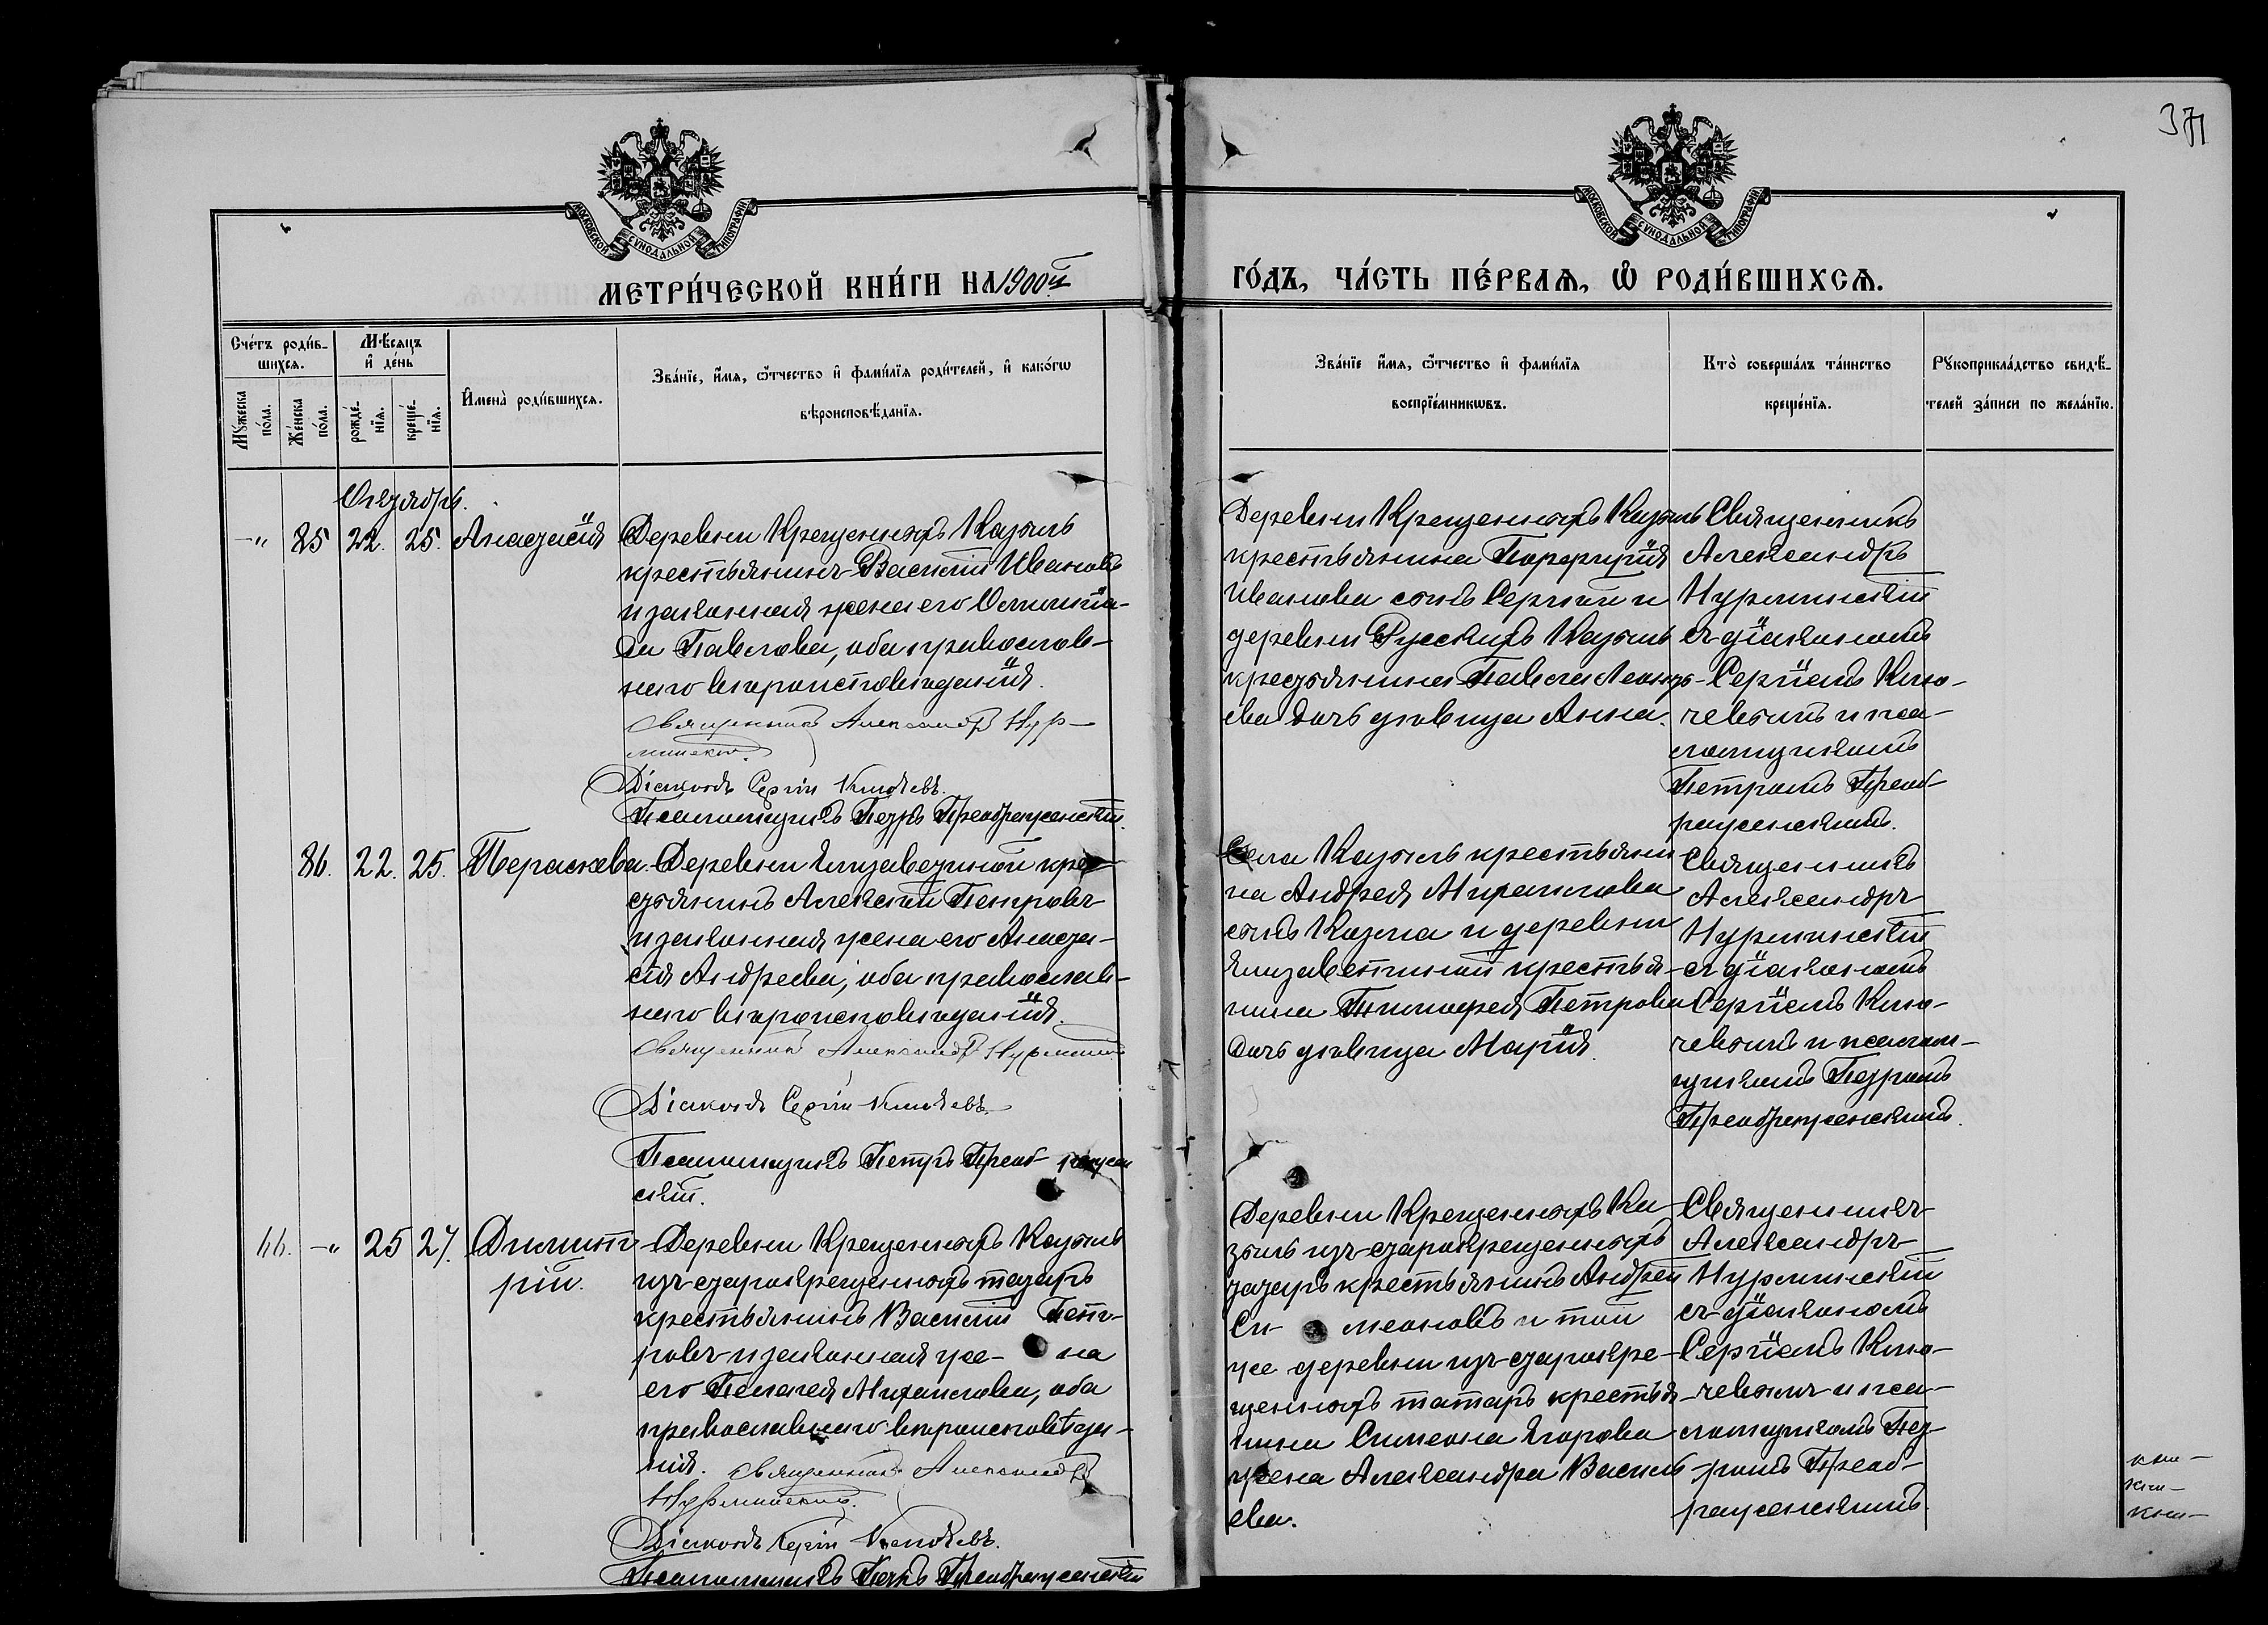 371
МОСКОВСКОЙ СѴНОДАЛЬНОЙ ТИПОГРАФІИ
МОСКОВСКОЙ СѴНОДАЛЬНОЙ ТИПОГРАФІИ
МЕТРИ́ЧЕСКОЙ КНИ́ГИ НА 1900й
ГО́ДЪ, ЧА́СТЬ ПЕ́РВАѦ, Ѽ РОДИ́ВШИХСѦ.
Сче́тъ роди́в-
шихсѧ.
Мѣ́сѧцъ
и҆ де́нь
Мꙋ́жеска
по́ла.
Же́нска
по́ла.
рожде́-
нїѧ.
креще́-
нїѧ.
И҆мена̀ роди́вшихсѧ.
Зва́нїе, и҆́мѧ, ѻ҆́тчество и҆ фами́лїѧ роди́телей, и҆ како́гѡ
вѣроисповѣ́данїѧ.
Зва́нїе и҆́мѧ, ѻ҆́тчество и҆ фами́лїѧ
воспрїе́мникѡвъ.
Кто̀ соверша́лъ та́инство
креще́нїѧ.
Рꙋкоприкла́дство свидѣ́-
телей за́писи по жела́нїю.
Октябрь.
-" 85 22. 25. Анастасія
Деревни Крещенныхъ Казыль
крестьянинъ Василій Ивановъ
и законная жена его Олимпіа-
да Павлова, оба православ-
наго вѣроисповѣданія.
Священникъ Александръ Нур-
минскій.
Діаконъ Сергій Ключевъ.
Псаломщикъ Петръ Преображенскій.
Деревни Крещенныхъ Казыль
крестьянина Порфирія
Иванова сынъ Сергій и
деревни Русскихъ Казыль
крестьянина Павла Леонть-
ева дочь дѣвица Анна.
Священникъ
Александръ
Нурминскій
съ діакономъ
Сергіемъ Клю-
чевымъ и пса-
ломщикомъ
Петромъ Преоб-
раженскимъ.
86. 22. 25. Параскева.
Деревни Елизаветиной кре-
стьянинъ Алексій Петровъ
и законная жена его Анаста-
сія Андреева, оба православ-
наго вѣроисповѣданія.
Священникъ Александръ Нурминскій
Діаконъ Сергій Ключевъ.
Псаломщикъ Петръ Преображен
скій.
Села Казыль крестьяни-
на Андрея Михаилова
сынъ Козма и деревни
Елизаветиной крестья-
нина Тимофея Петрова
дочь дѣвица Марія.
Священникъ
Александръ
Нурминскій
съ діакономъ
Сергіемъ Клю-
чевымъ и псалом-
щикомъ Петромъ
Преображенскимъ.
66. -" 25 27. Димит
рій.
Деревни Крещенныхъ Казыль
изъ старокрещенныхъ татаръ
крестьянинъ Василій Пет-
ровъ и законная же- на
его Пелагея Михаилова, оба
православнаго вѣроисповѣда-
нія. Священникъ Александръ
Нурминскій.
Діаконъ Сергій Ключевъ.
Псаломщикъ Петръ Преображенскій
Деревни Крещенныхъ Ка-
зыль изъ старокрещенныхъ
татаръ крестьянинъ Андрей
Си- меоновъ и той
же деревни изъ старокре-
щенныхъ татаръ крестья-
нина Симеона Егорова
жена Александра Василь-
ева.
Священникъ
Александръ
Нурминскій
съ діакономъ
Сергіемъ Клю-
чевымъ и пса-
ломщикомъ Пет-
ромъ Преоб-
раженскимъ.